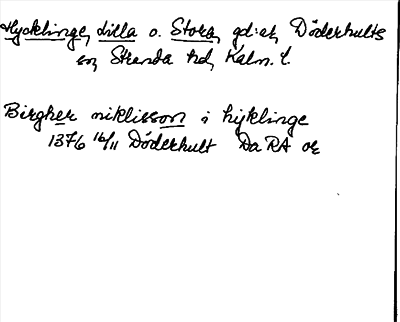 Hycklinge, Lilla o. Stora, gd:ar, Döderhults
sn, Stranda hd, Kalm. l.
Birgher niklisson i hyklinge
1376 16/11 Döderhult Da RA or